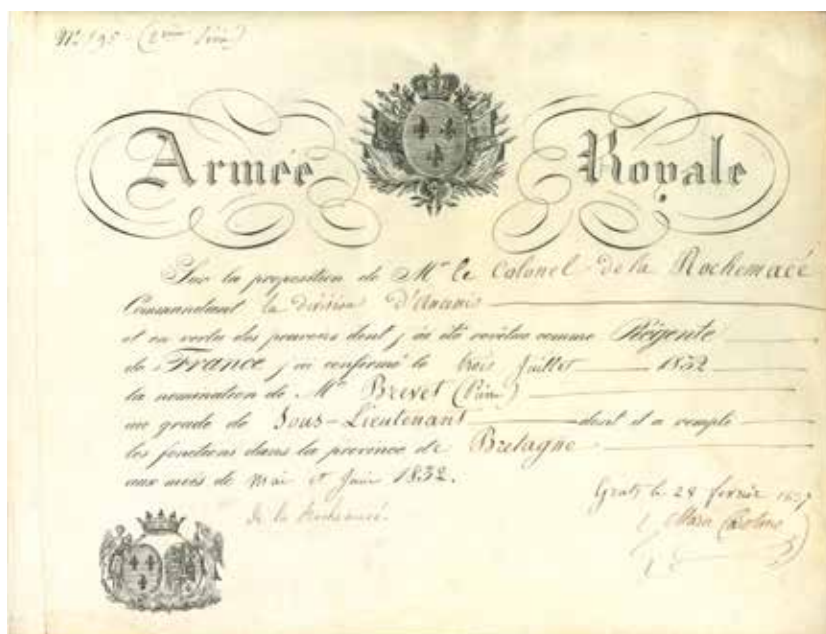 N° 195 - (2ème Série)
Armée Royale
Sur la proposition de Mr le Colonel de la Rochemacé
Commandant la division d'Ancenis
et en vertu des pouvoirs dont j'ai été revêtue comme Régente
de France j'ai confirmé le trois Juillet 1832
la nomination de Mr Brevet
au grade de Sous-Lieutenant dont il a rempli
les fonctions dans la province de Bretagne
aux mois de Mai et Juin 1832.
Gratz le 28 février 1837
de la Rochemacé.
Marie Caroline